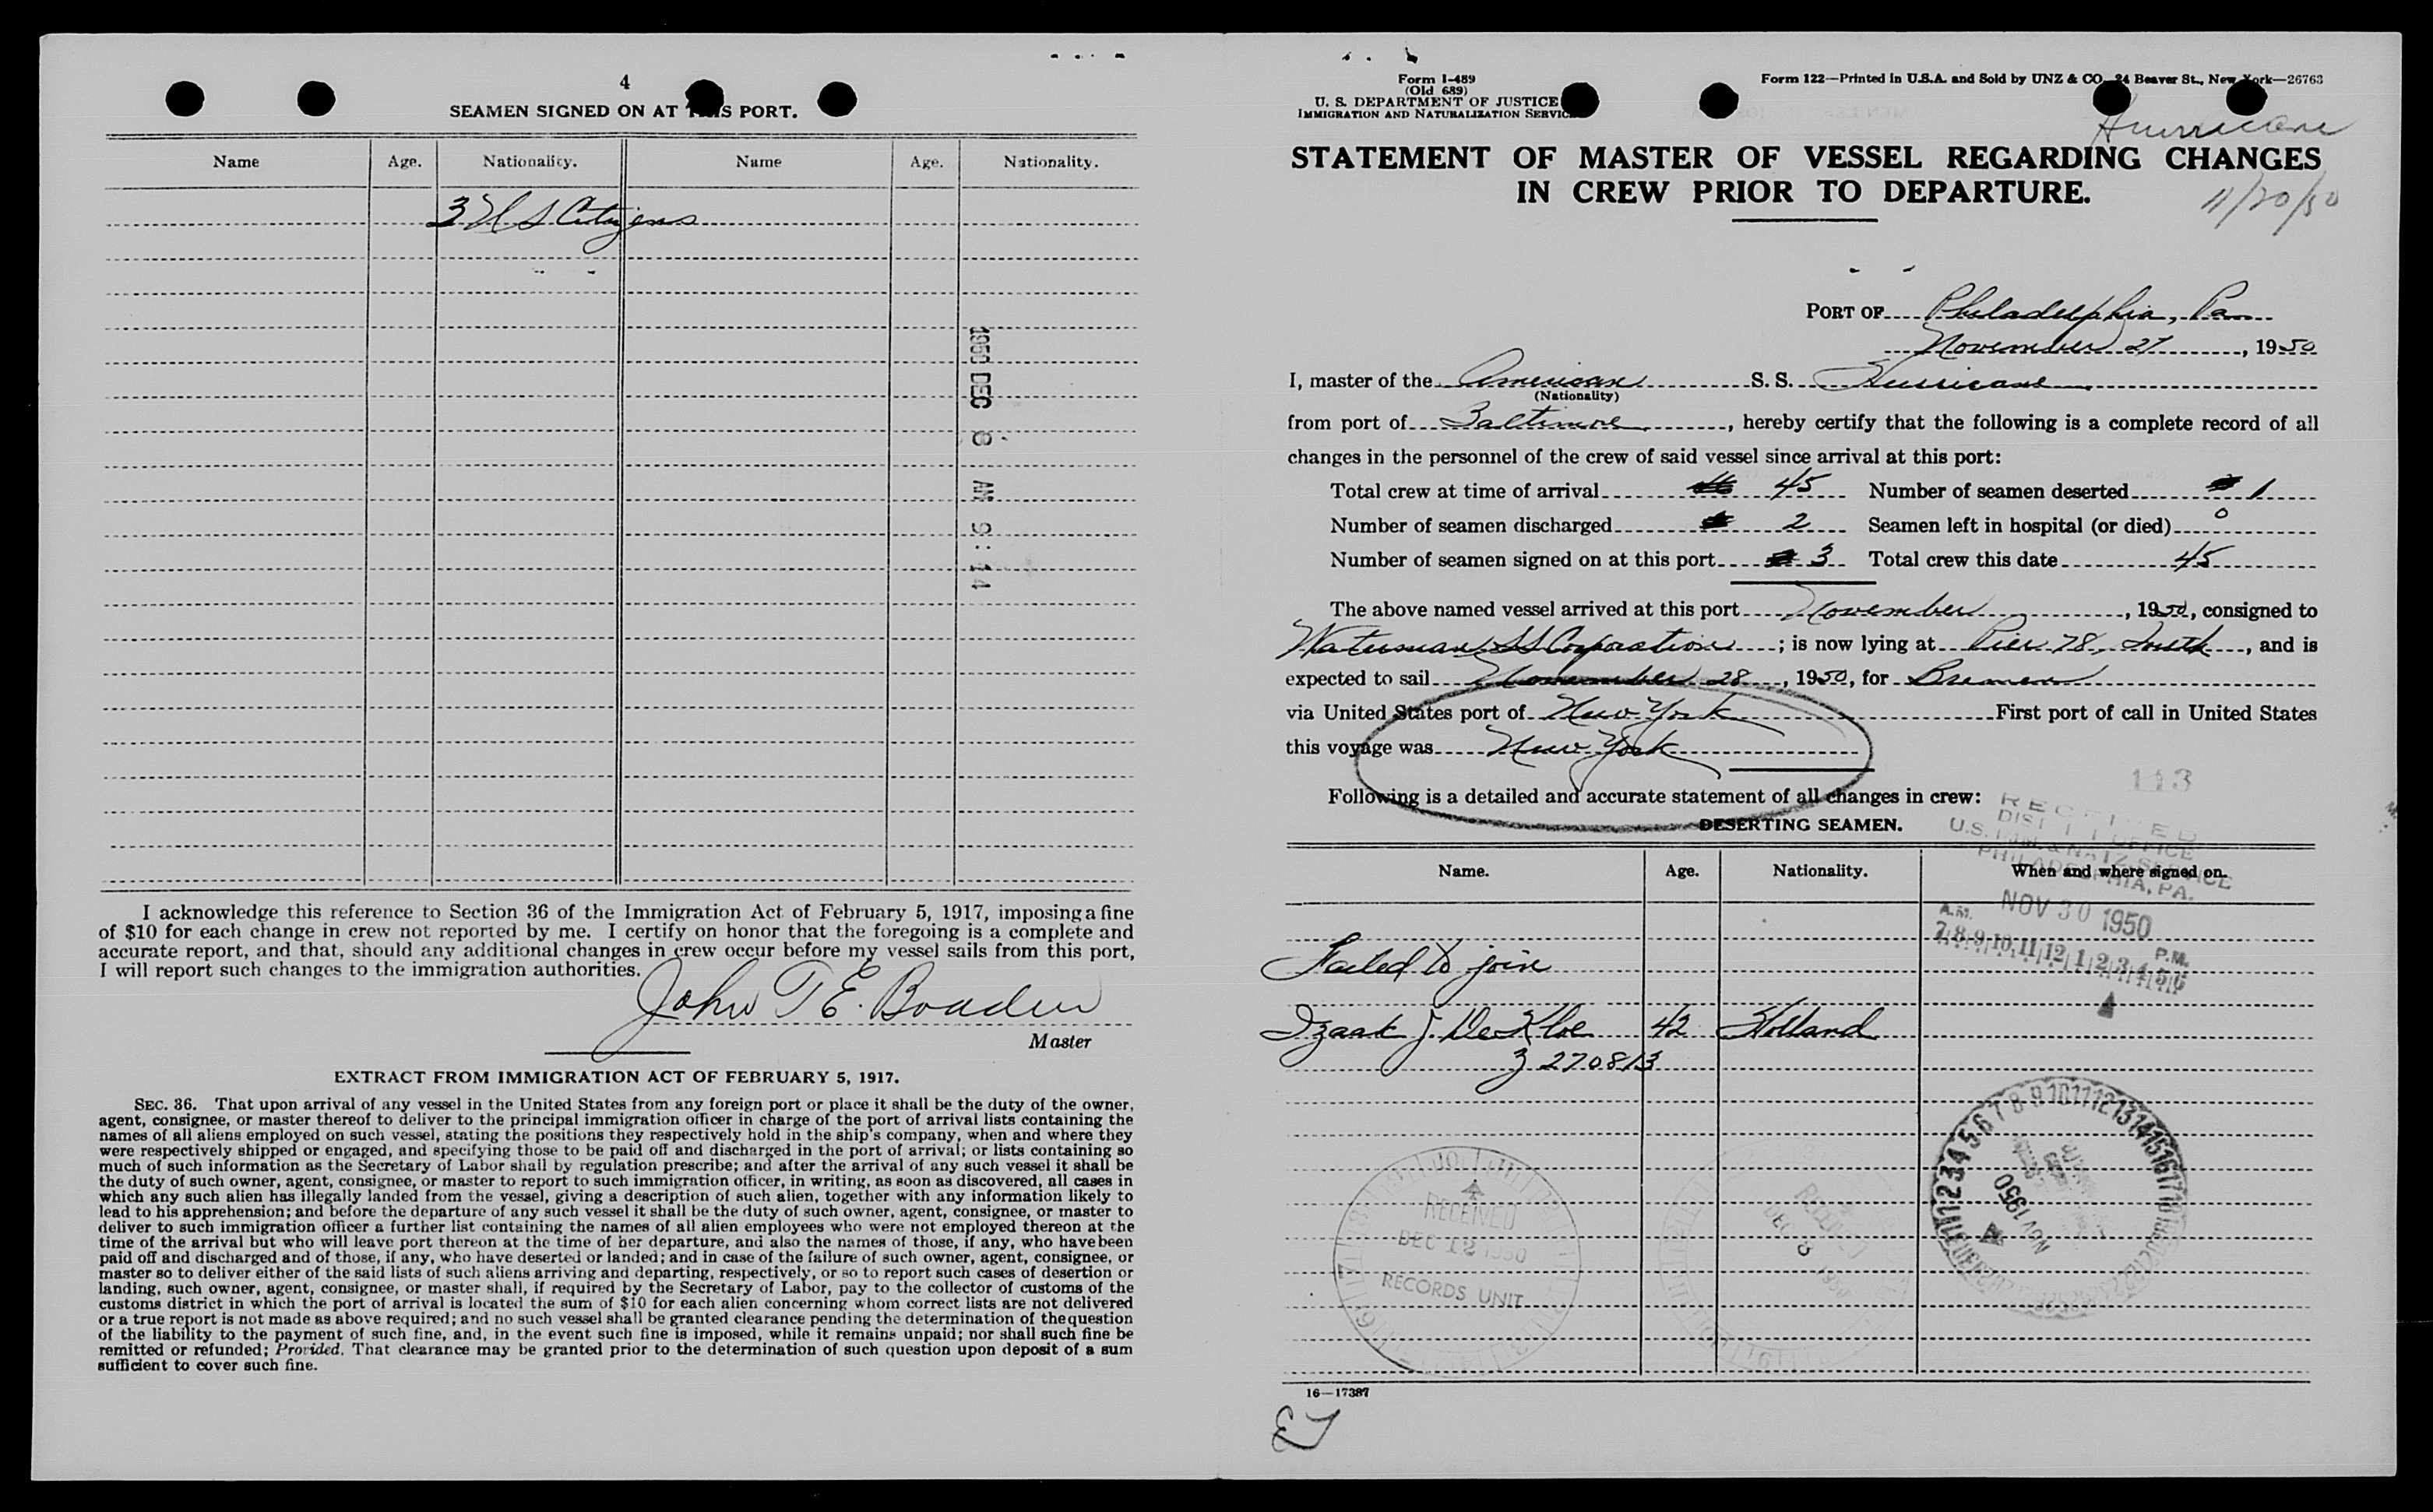 4
SEAMEN SIGNED ON AT THIS PORT.
Name Age. Nationality. Name Age. Nationality.
3 U S Citizens
1950 DEC 8 AM 9:14
I acknowledge this reference to Section 36 of the Immigration Act of February 5, 1917, imposing a fine
of $10 for each change in crew not reported by me. I certify on honor that the foregoing is a complete and
accurate report, and that, should any additional changes in crew occur before my vessel sails from this port,
I will report such changes to the immigration authorities.
John T E. Boaden
Master
EXTRACT FROM IMMIGRATION ACT OF FEBRUARY 5, 1917.
SEC. 36. That upon arrival of any vessel in the United States from any foreign port or place it shall be the duty of the owner,
agent, consignee, or master thereof to deliver to the principal immigration officer in charge of the port of arrival lists containing the
names of all aliens employed on such vessel, stating the positions they respectively hold in the ship's company, when and where they
were respectively shipped or engaged, and specifying those to be paid off and discharged in the port of arrival; or lists containing so
much of such information as the Secretary of Labor shall by regulation prescribe; and after the arrival of any such vessel it shall be
the duty of such owner, agent, consignee, or master to report to such immigration officer, in writing, as soon as discovered, all cases in
which any such alien has illegally landed from the vessel, giving a description of such alien, together with any information likely to
lead to his apprehension; and before the departure of any such vessel it shall be the duty of such owner, agent, consignee, or master to
deliver to such immigration officer a further list containing the names of all alien employees who were not employed thereon at the
time of the arrival but who will leave port thereon at the time of her departure, and also the names of those, if any, who have been
paid off and discharged and of those, if any, who have deserted or landed; and in case of the failure of such owner, agent, consignee, or
master so to deliver either of the said lists of such aliens arriving and departing, respectively, or so to report such cases of desertion or
landing, such owner, agent, consignee, or master shall, if required by the Secretary of Labor, pay to the collector of customs of the
customs district in which the port of arrival is located the sum of $10 for each alien concerning whom correct lists are not delivered
or a true report is not made as above required; and no such vessel shall be granted clearance pending the determination of the question
of the liability to the payment of such fine, and, in the event such fine is imposed, while it remains unpaid; nor shall such fine be
remitted or refunded; Provided, That clearance may be granted prior to the determination of such question upon deposit of a sum
sufficient to cover such fine.
Form I-489
(Old 689)
U. S. DEPARTMENT OF JUSTICE
IMMIGRATION AND NATURALIZATION SERVICE
Form 122—Printed in U.S.A. and Sold by UNZ & CO., 24 Beaver St., New York—26763
Hurricane
STATEMENT OF MASTER OF VESSEL REGARDING CHANGES
IN CREW PRIOR TO DEPARTURE.
11/20/50
PORT OF Philadelphia, Pa
November 27, 1950
I, master of the American S. S. Hurricane
(Nationality)
from port of Baltimore, hereby certify that the following is a complete record of all
changes in the personnel of the crew of said vessel since arrival at this port:
Total crew at time of arrival 45 Number of seamen deserted 1
Number of seamen discharged 2 Seamen left in hospital (or died) 0
Number of seamen signed on at this port 3 Total crew this date 45
The above named vessel arrived at this port November, 1950, consigned to
Waterman SS Corporation; is now lying at Pier 78, South, and is
expected to sail November 28, 1950, for Bremen
via United States port of New York First port of call in United States
this voyage was New York
113
Following is a detailed and accurate statement of all changes in crew:
DESERTING SEAMEN.
RECEIVED
DISTRICT OFFICE
U.S. IMM. & NATZ. SERVICE
PHILADELPHIA, PA.
Name. Age. Nationality. When and where signed on.
NOV 30 1950
A.M. P.M.
7 8 9 10 11 12 1 2 3 4 5 6
Failed to join
Izaak J. DeKloe 42 Holland
Z 270813
RECEIVED
DEC 12 1950
RECORDS UNIT
RECEIVED
DEC 8 1950
NOV 1950
16—17387